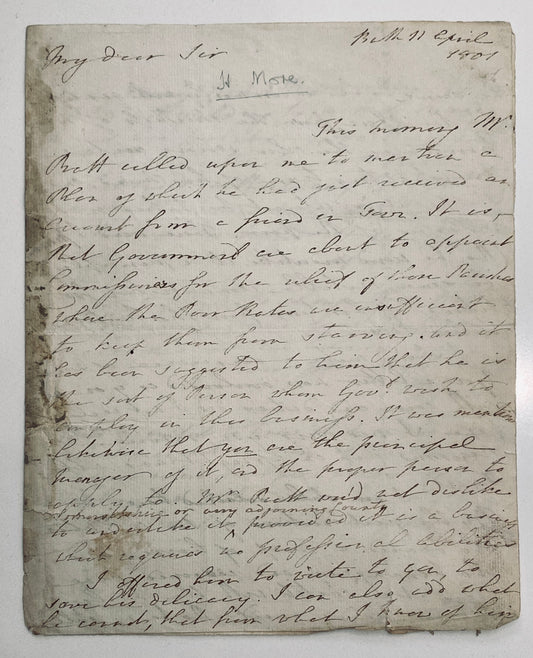 Bath 11 April
1801
My dear Sir
H More.
This morning Mr.
Pratt called upon me to mention a
Plan of which he had just received an
Account from a friend in Town. It is,
that Government are about to appoint
Commissioners for the relief of those Parishes
where the Poor Rates are insufficient
to keep them from starving. and it
has been suggested to him that he is
the sort of Person whom Govt. wish to
employ in this business. It was mention
likewise that you are the principal
manager of it, and the proper person to
apply to. Mr. Pratt would not dislike
or any adjoining County
to undertake it, provided it is a business
which requires no professional abilities
I offered him to write to you, to
save his delicacy. I can also add what
he cannot, that from what I know of him